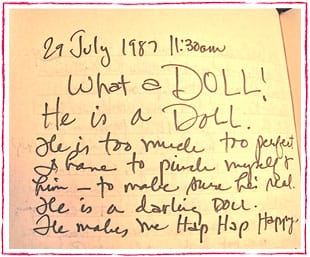 29 July 1987 11:30am
What a DOLL!
He is a Doll.
He is too much too perfect
I have to pinch myself &
him — to make sure he's real.
He is a darling Doll.
He makes me Hap Hap Happy.